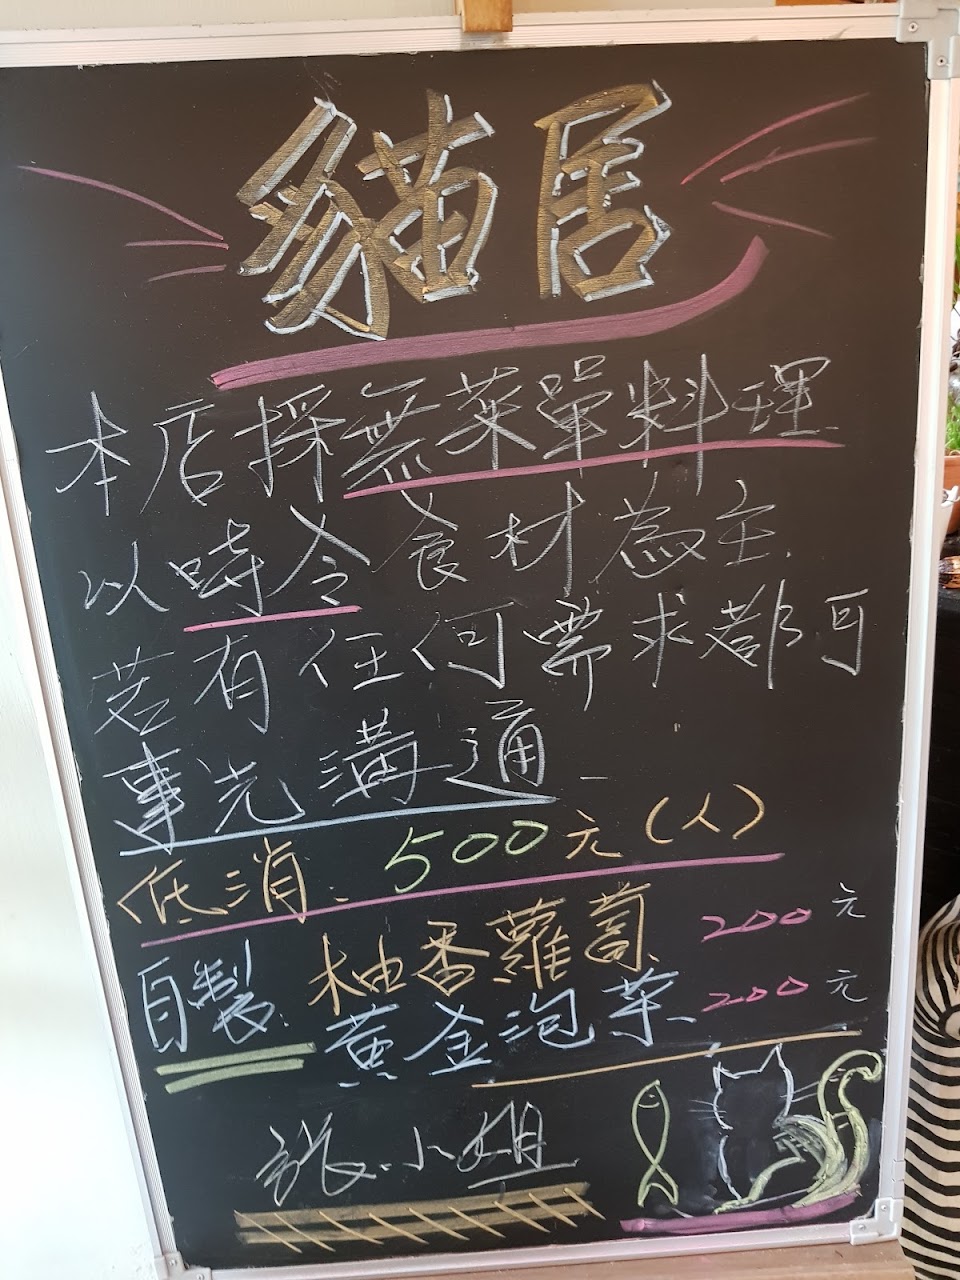 貓居
本店採無菜單料理
以時令食材為主
若有任何需求都可
事先溝通
低消：500元（人）
自製：柚香蘿蔔 200元
黃金泡菜 200元
張小姐